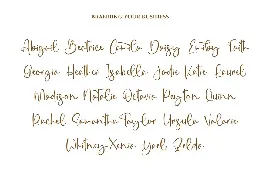 BRANDING YOUR BUSINESS
Abigail Beatrice Camila Daisy Emiley Faith
Georgia Heather Isabella Jodie Katie Laurel
Madison Natalie Octavia Payton Quinn
Rachel Samantha Taylor Ursula Valarie
Whitney Xenia Yael Zelda